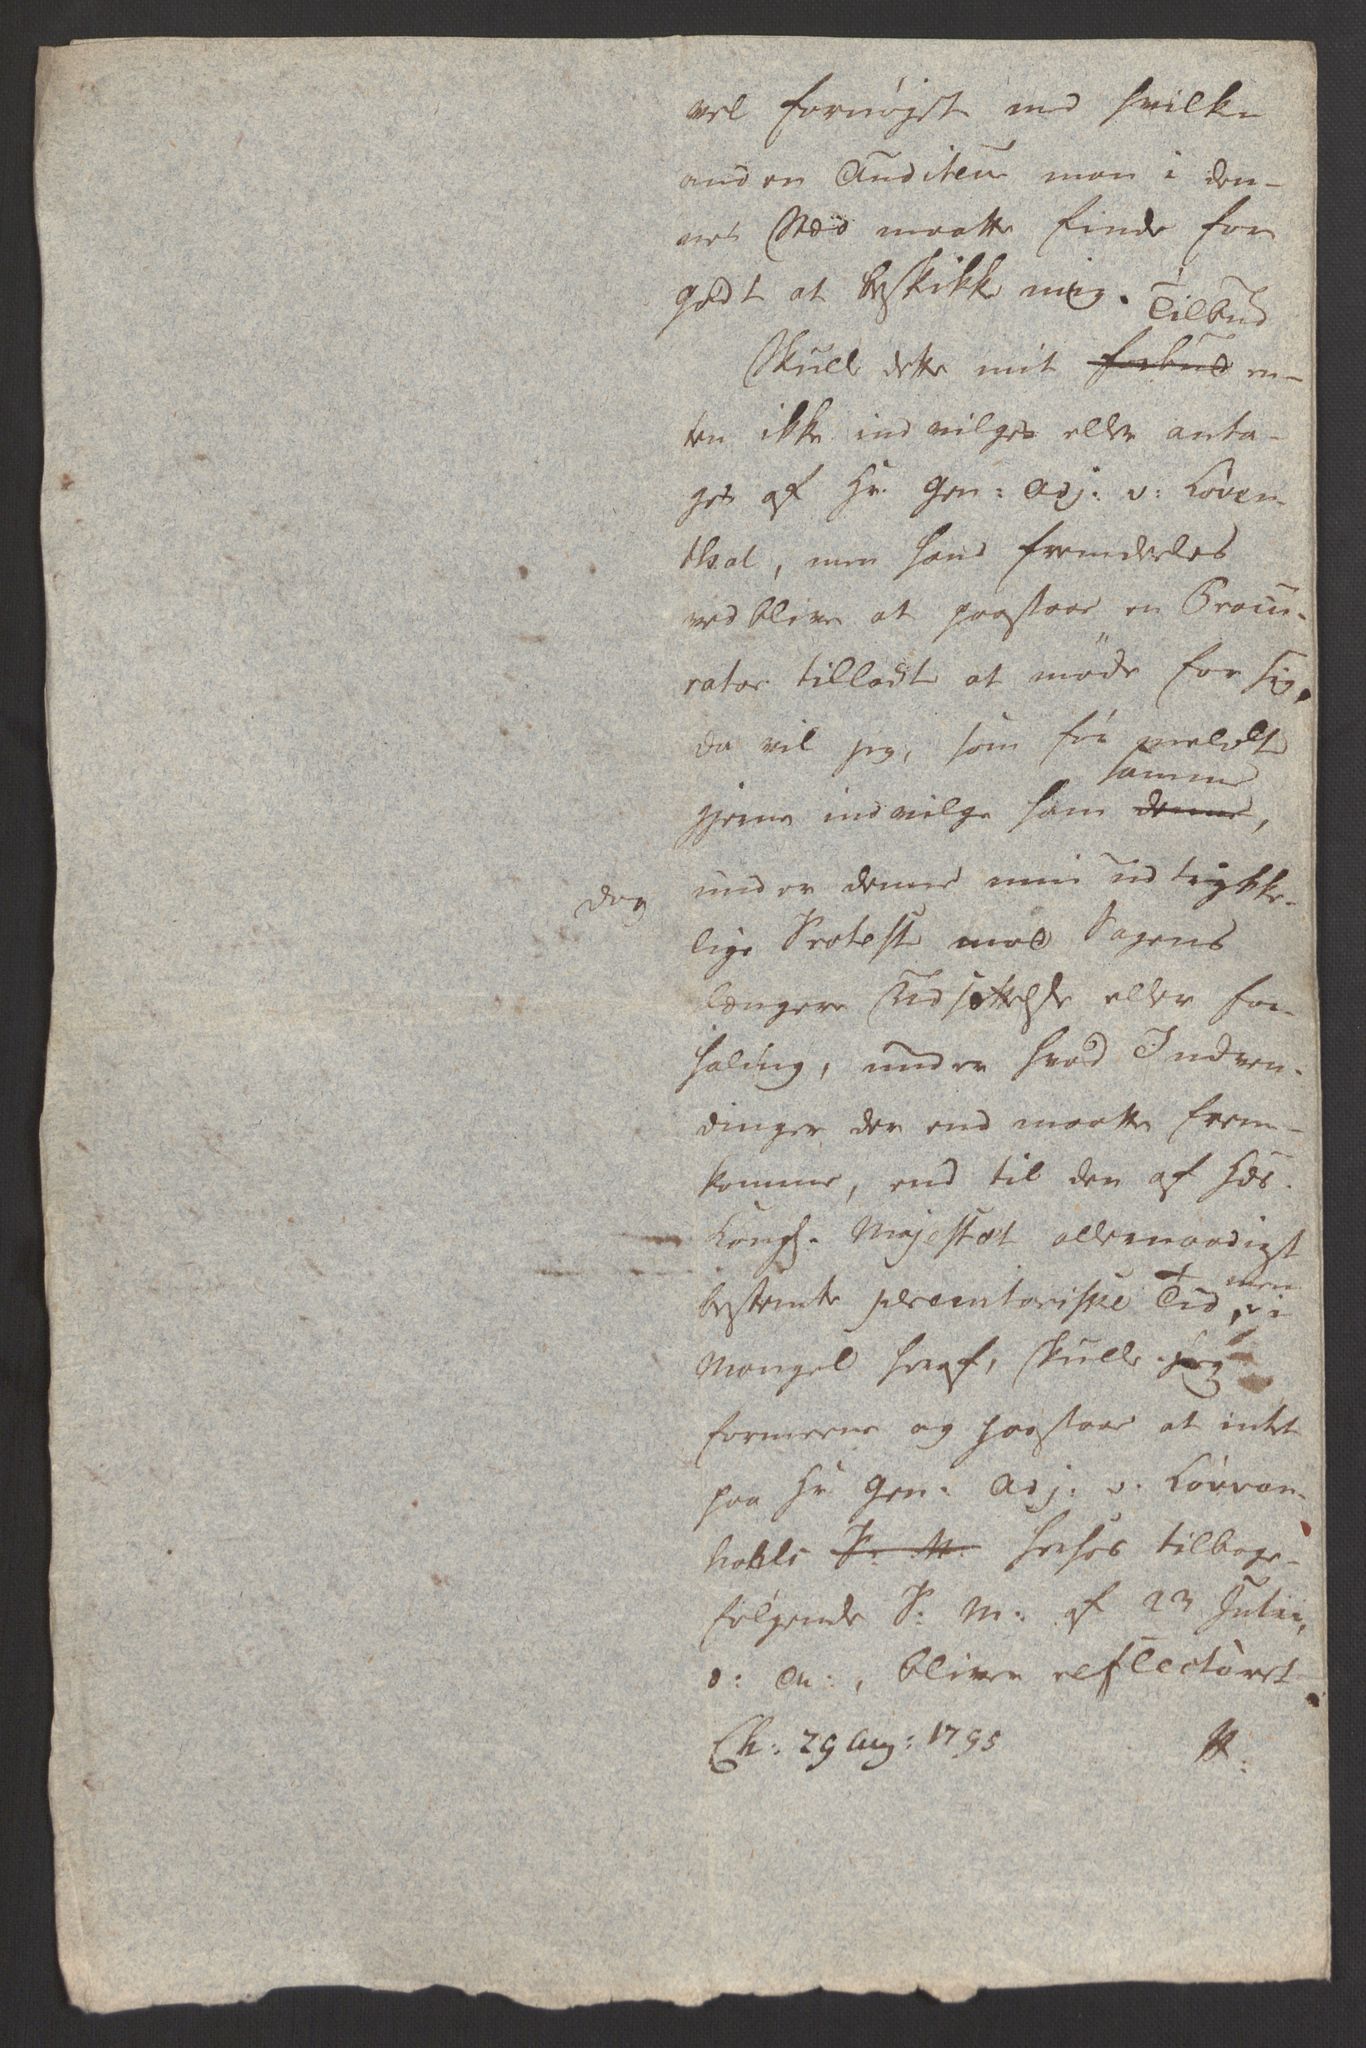 vel fornøjet med hvilken
anden Auditeur man i den-
nes Stæd maatte finde for
godt at beskikke mig. Tilbud
Skulle dette mit forbud en-
ten ikke indvilges eller anta-
ges af Hr. Gen: Adj: v: Löven-
thal, men hand fremdeeles
vedblive at paastaae en Procu-
rator tilladt at møde for sig,
da vil jeg, som før meldt
samme
gjerne indvilge ham denne,
dog under denne min udtrykke-
lige Protest mod Sagens
længere Udsættelse eller for-
haling, under hvad Indven-
dinger der end maatte frem-
komme, end til den af Hds.
Kongl. Majestæt allernaadigst
bestemte peremtoriske Tid, men i
Mangel heraf, skulle jeg
formeene og paastaae at intet
paa Hr. Gen: Adj: v.
P: M: herhos tilbage-
følgende P: M: af 23 Julii,
d: A:, bliver reflecteret
Ch: 29 Aug: 1795